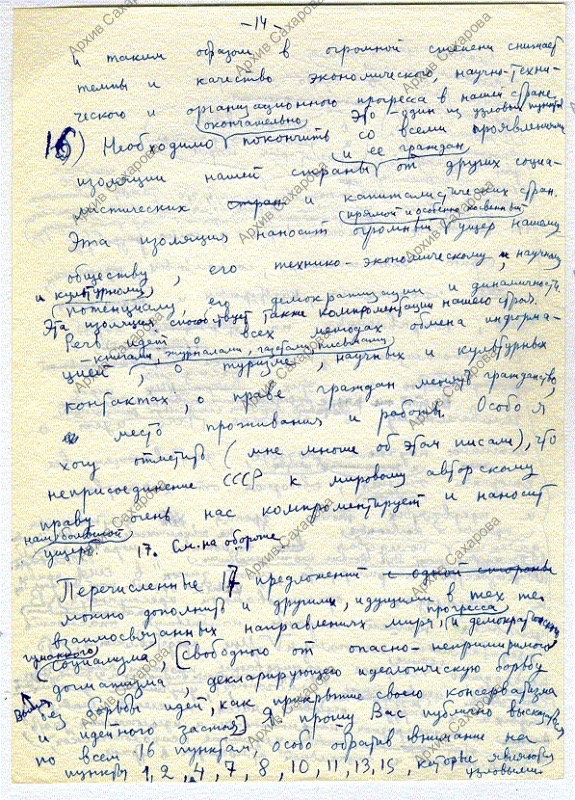 - 14 -
и таким образом в огромной степени снижает
темпы и качество экономического, научно-техни-
ческого и организационного прогресса в нашей стране.
Это один из узловых пунктов
окончательно
16) Необходимо покончить со всеми проявлениями
и ее граждан
изоляции нашей страны от других социа-
листических стран и капиталистических стран.
прямой и особенно косвенный
Эта изоляция наносит огромный ущерб нашему
обществу, его технико-экономическому, и научному
и культурному потенциалу, его демократизации и динамичности
Эта изоляция способствует также компрометации нашего строя.
Речь идет о всех методах обмена информа-
книгами, журналами, газетами, письмами
цией, о туризме, научных и культурных
контактах, о праве граждан менять гражданство,
место проживания и работы. Особо я
хочу отметить (мне многие об этом писали), что
неприсоединение СССР к мировому авторскому
праву очень нас компрометирует и наносит
нам большой
ущерб. 17. См. на обороте
Перечисленные 17 предложений с одной стороны
можно дополнить и другими, идущими в тех же
прогресса
взаимосвязанных направлениях мира, и демократизации
гуманного
социализма, [свободного от опасно-непримиримого
догматизма, декларирующего идеологическую борьбу
без борьбы идей, как прикрытие своего консерватизма
и идейного застоя] Я прошу Вас публично высказаться
по всем 16 пунктам, особо обратив внимание на
пункты 1, 2, 4, 7, 8, 10, 11, 13, 15, которые являются
узловыми.
Архив Сахарова